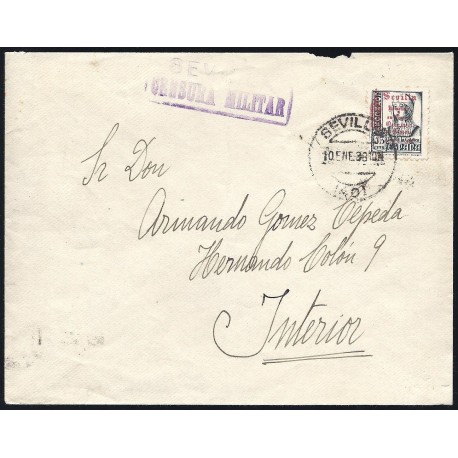 CENSURA MILITAR
Sevilla
SEVILLA
10 ENE 38
Sr Don
Armando Gomez Cepeda
Hernando Colón 9
Interior